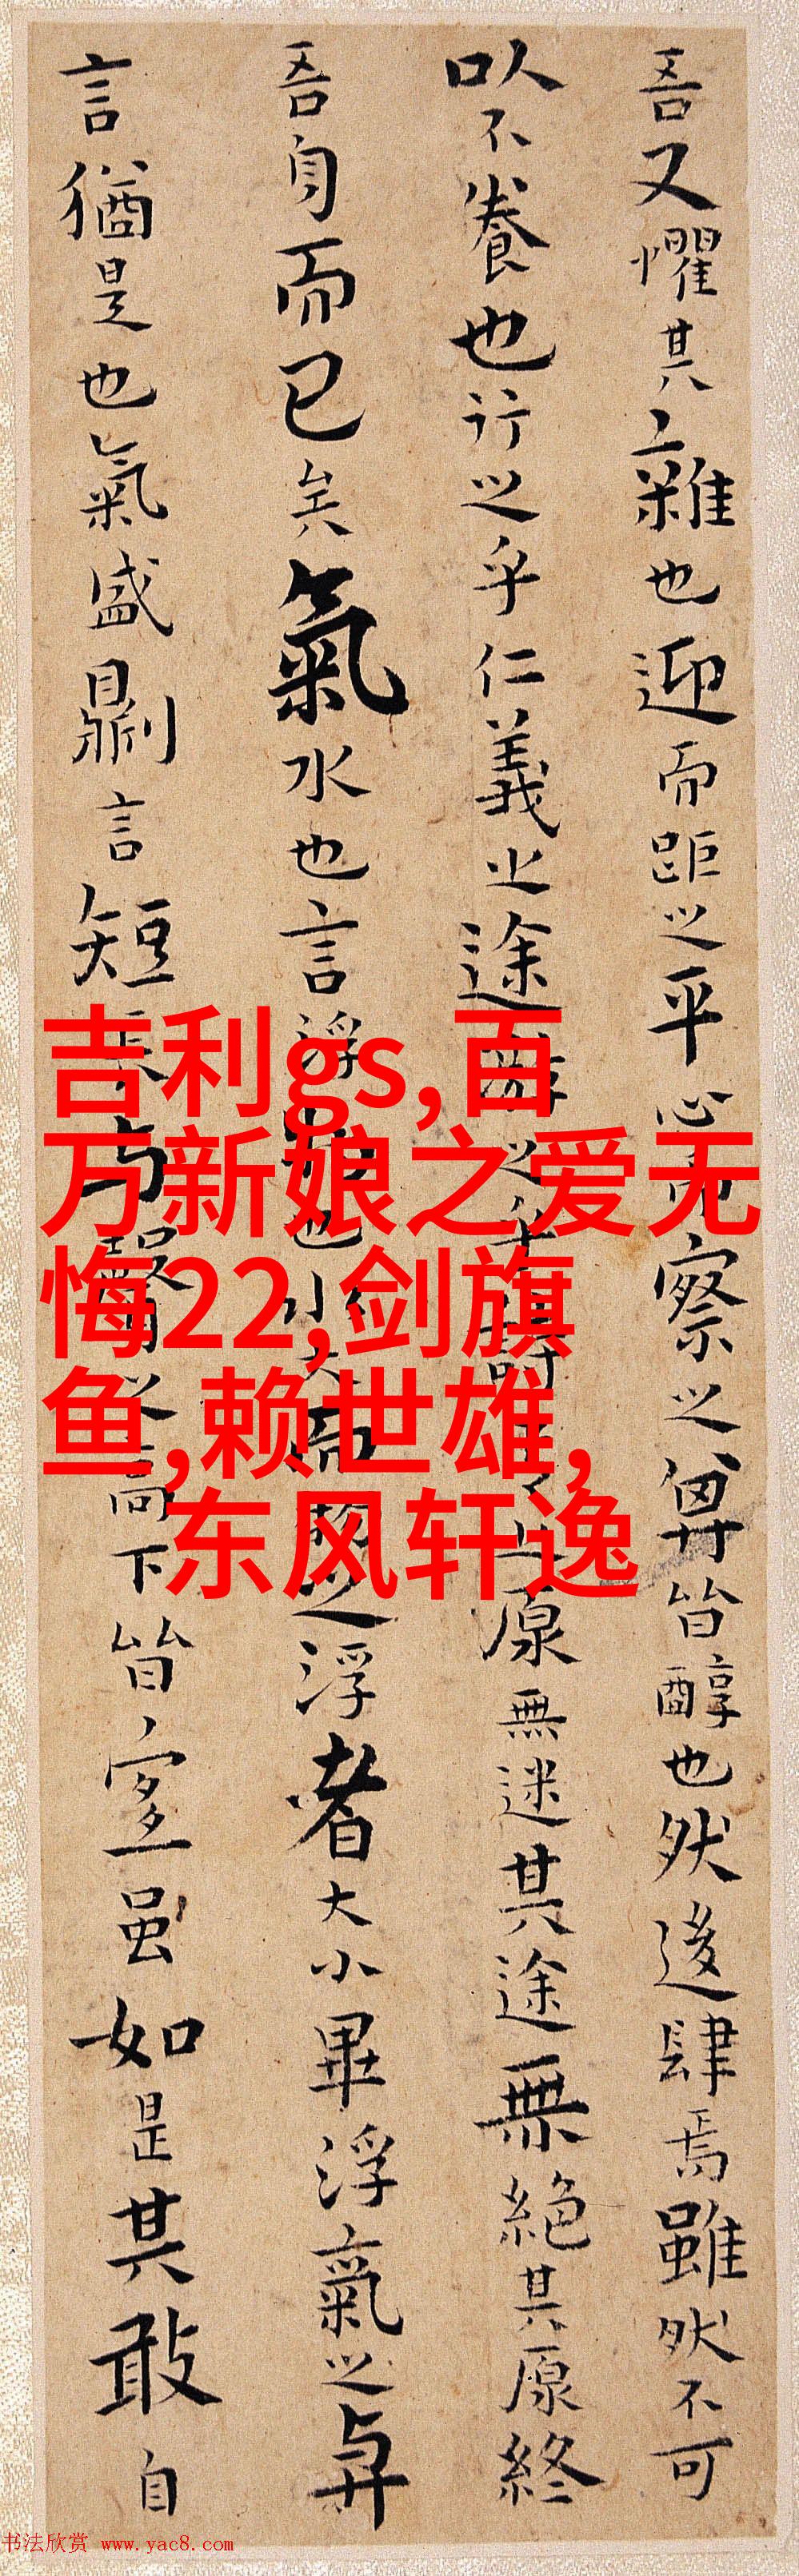 吾又懼其雜也迎而距之平心而察之其皆醇也然後肆焉雖然不可
以不養也行之乎仁義之途游之乎詩書之原無迷其途無絕其原終
吾身而已矣氣水也言浮物也水大而物之浮者大小畢浮氣之與
言猶是也氣盛則言短長與聲之高下皆宜雖如是其敢自
吉利gs,百
万新娘之爱无
悔22,剑旗
鱼,赖世雄,
东风轩逸
书法欣赏 www.yac8.com